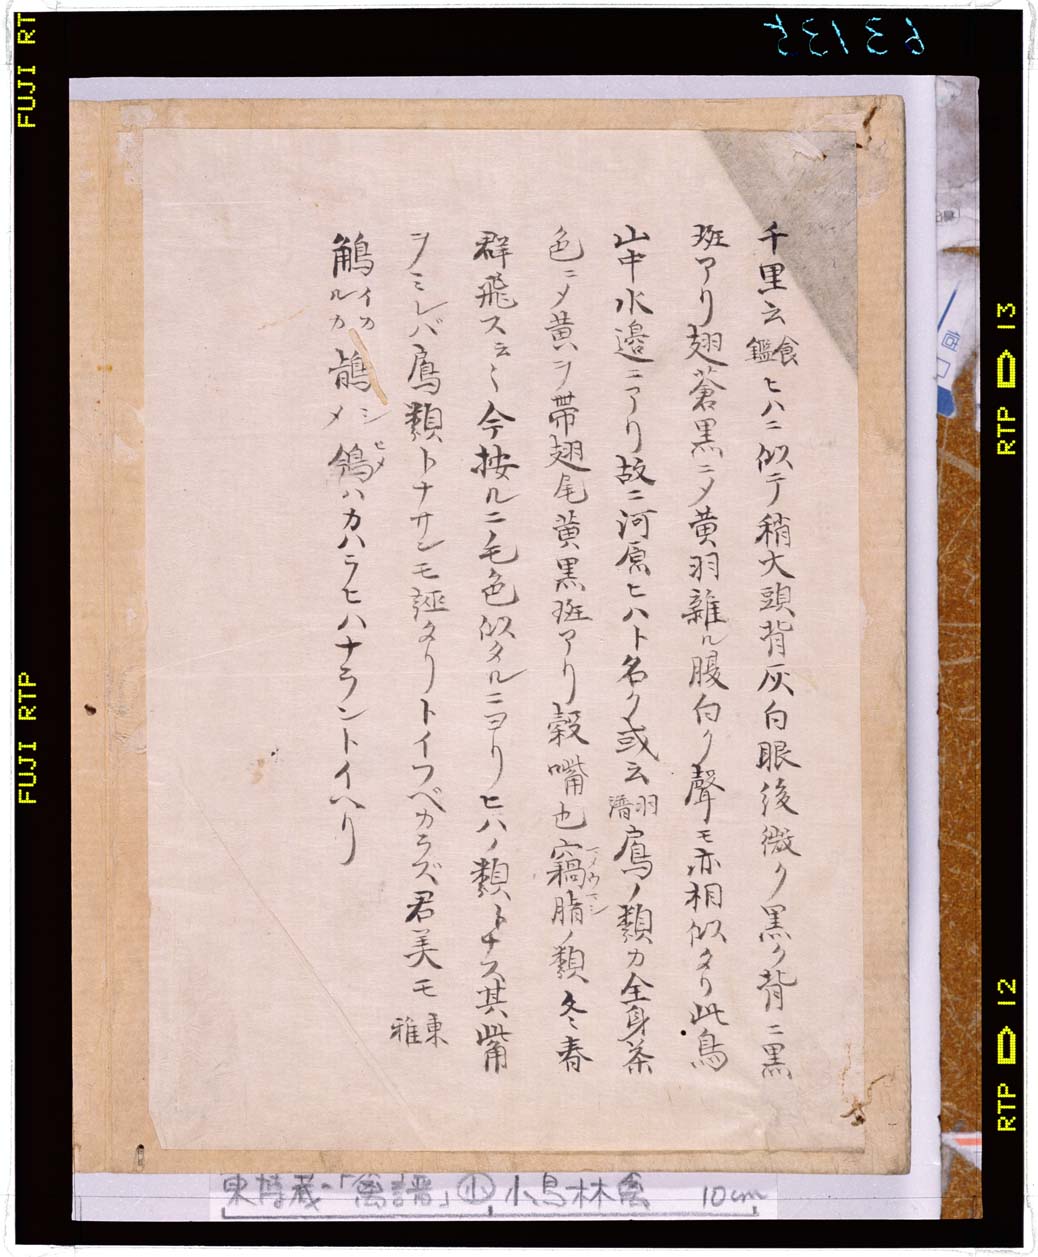 63135
千里云食鑑ヒハニ似テ稍大頭背灰白眼後微ク黒ク背ニ黒
斑アリ翅蒼黒ニメ黄羽雜ル腹白ク聲モ亦相似タリ此鳥
山中水邉ニアリ故ニ河原ヒハト名ク或云羽譜鳸ノ類カ全身茶
色ニメ黄ヲ帯翅尾黄黒斑アリ穀嘴也竊脂ノ類冬春
群飛ス云々今按ルニ毛色似タルニヨリヒハノ類トナス其觜
ヲミレバ鳸類トナサンモ誣タリトイフベカラズ君美モ東雅
鵤イカルカ鴲シメ鳹ヒメハカハラヒハナラントイヘリ
東博蔵「禽譜」小 小鳥林禽 10cm
FUJI RT
FUJI RTP
RTP 13
RTP 12